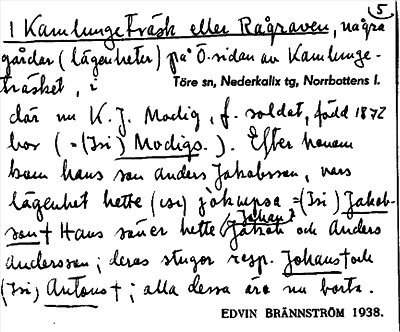 5
1 Kamlungeträsk eller Rågraven, några
gårdar (lägenheter) på Ö. sidan av Kamlunge-
träsket, i
Töre sn, Nederkalix tg, Norrbottens l.
där nu K. J. Modig, f. soldat, född 1872
bor (=(Isi) Modigs.). Efter honom
kom hans son Anders Jakobsson, vars
lägenhet hette (isi) =(Isi) Jakob-
son† Hans söner hette Johan och Anders
Andersson; deras stugor resp. Johans† och
(Isi) Antons†; alla dessa äro nu borta.
EDVIN BRÄNNSTRÖM 1938.